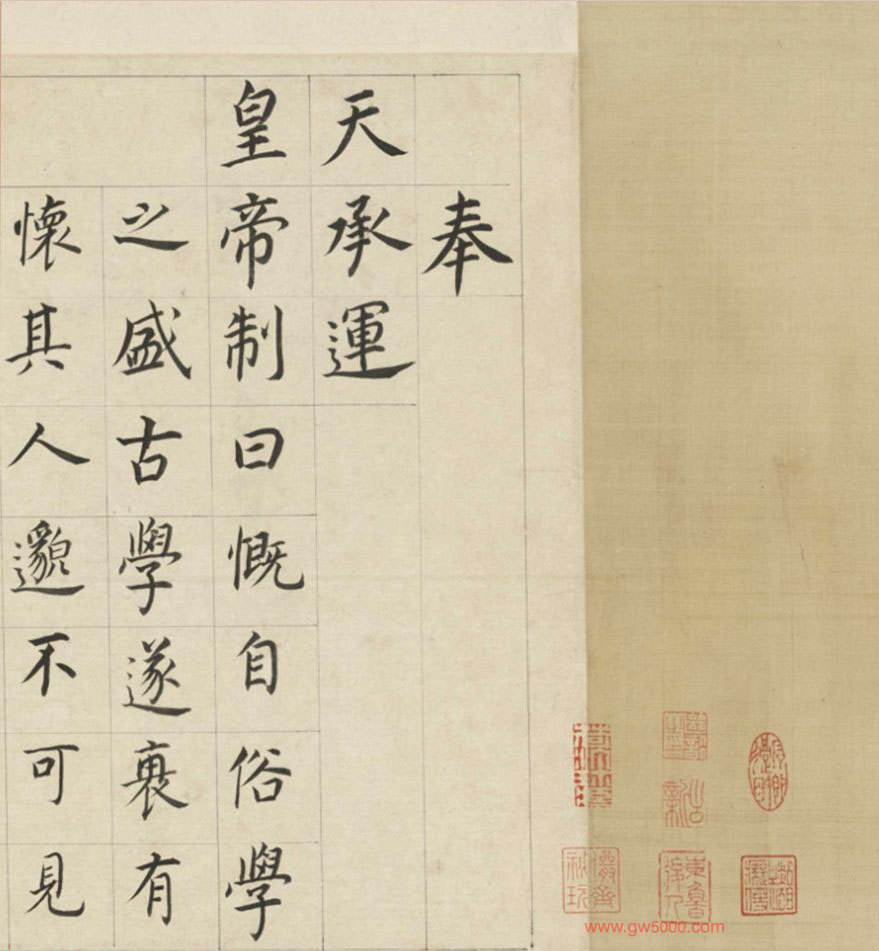 奉
天承運
皇帝制曰慨自俗學
之盛古學遂衰有
懷其人邈不可見
www.gw5000.com